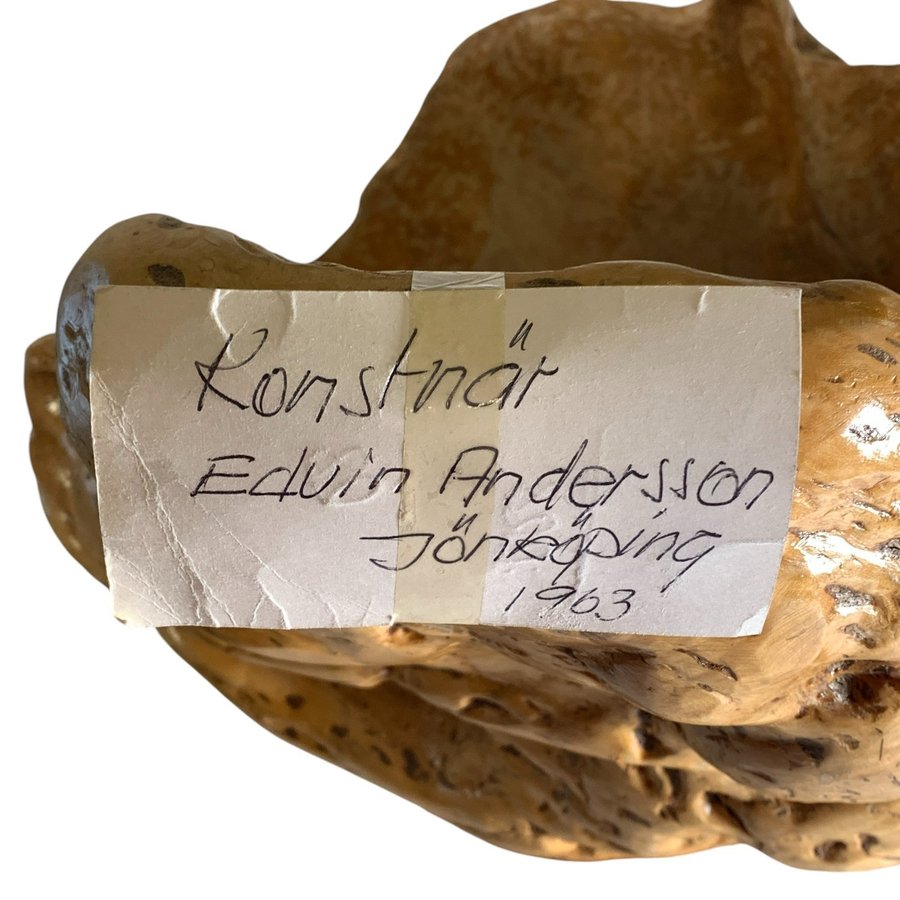 Konstnär
Edvin Andersson
Jönköping
1963